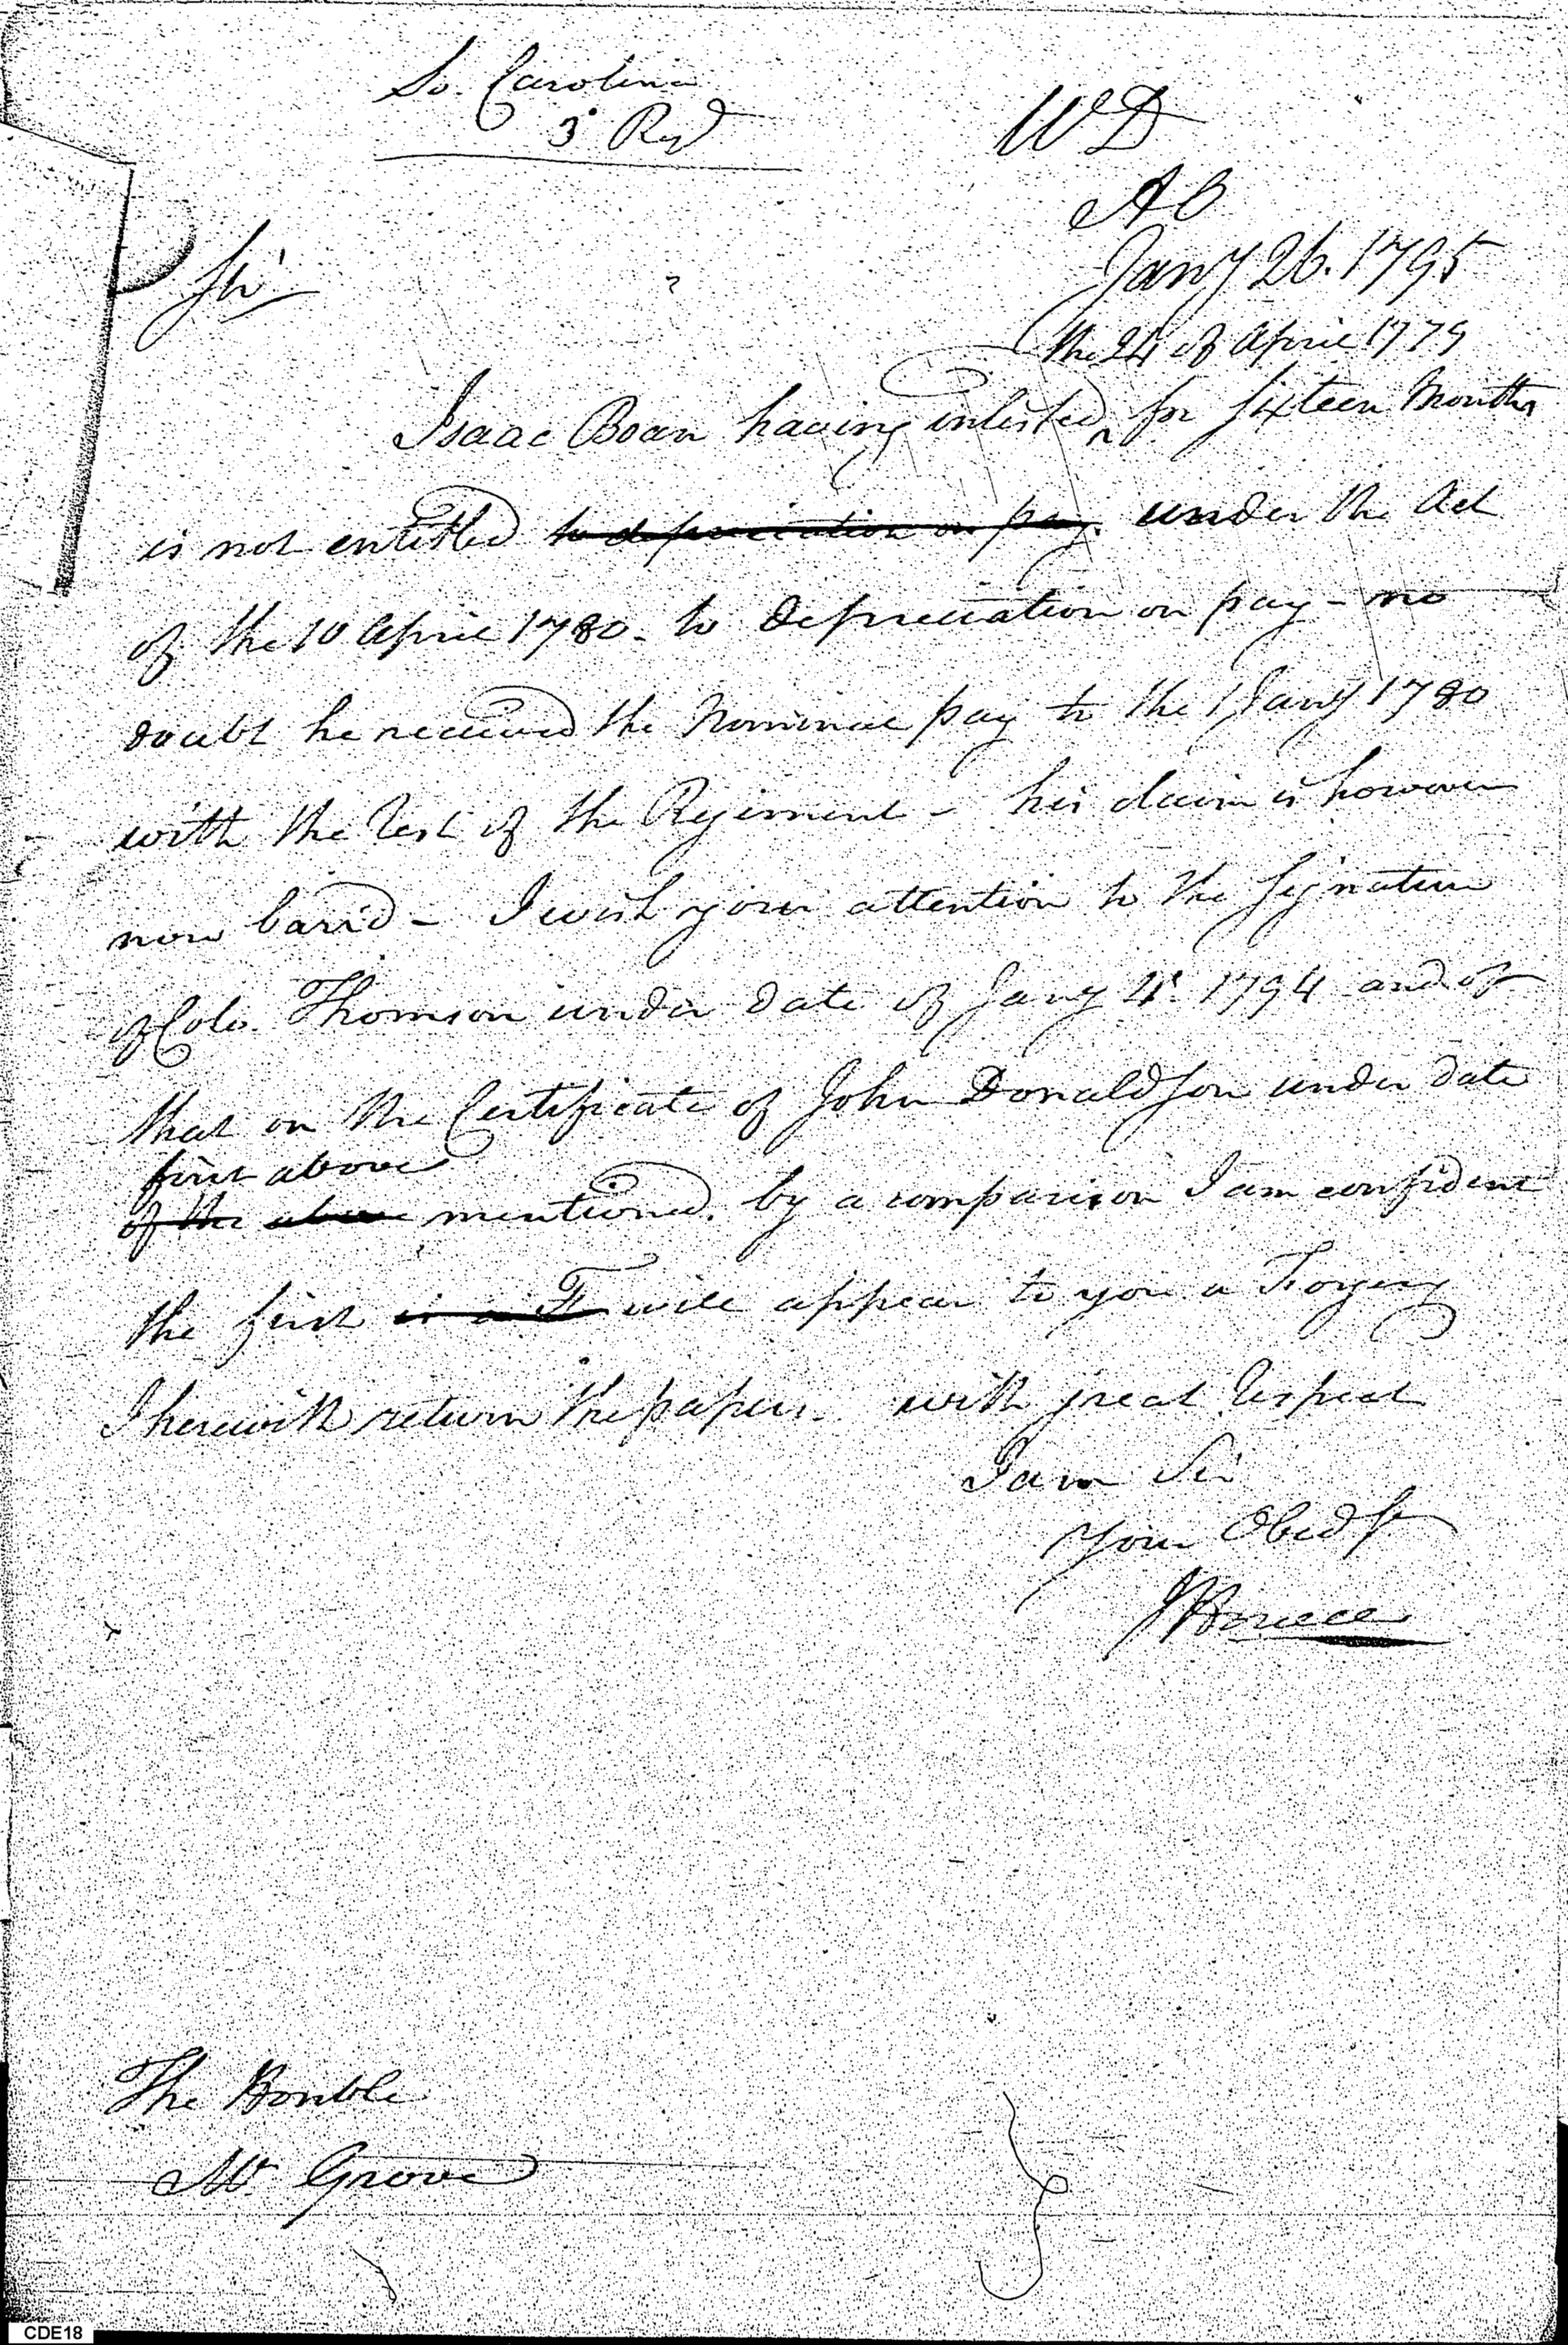 So. Carolina
3d Regt
W D
A O
Sir
Jany 26. 1795
the 24 of April 1779
Isaac Boan having inlisted ^ for sixteen Months
is not entitled to depreciation on pay. under the Act
of the 10 April 1780 - to depreciation on pay - no
doubt he received the Nominal pay to the 1 Jany 1780
with the rest of the Regiment - his claim is however
now barr'd - I wish your attention to the signature
of Colo. Thomson under date of Jany 4. 1794 and of
that on the Certificate of John Donaldson under date
first above
of the above mentioned. by a comparison I am confident
the first is a F will appear to you a Forgery
I herewith return the papers. with great respect
I am Sir
Your Obedt
The Honble
Mr. Grove
CDE18